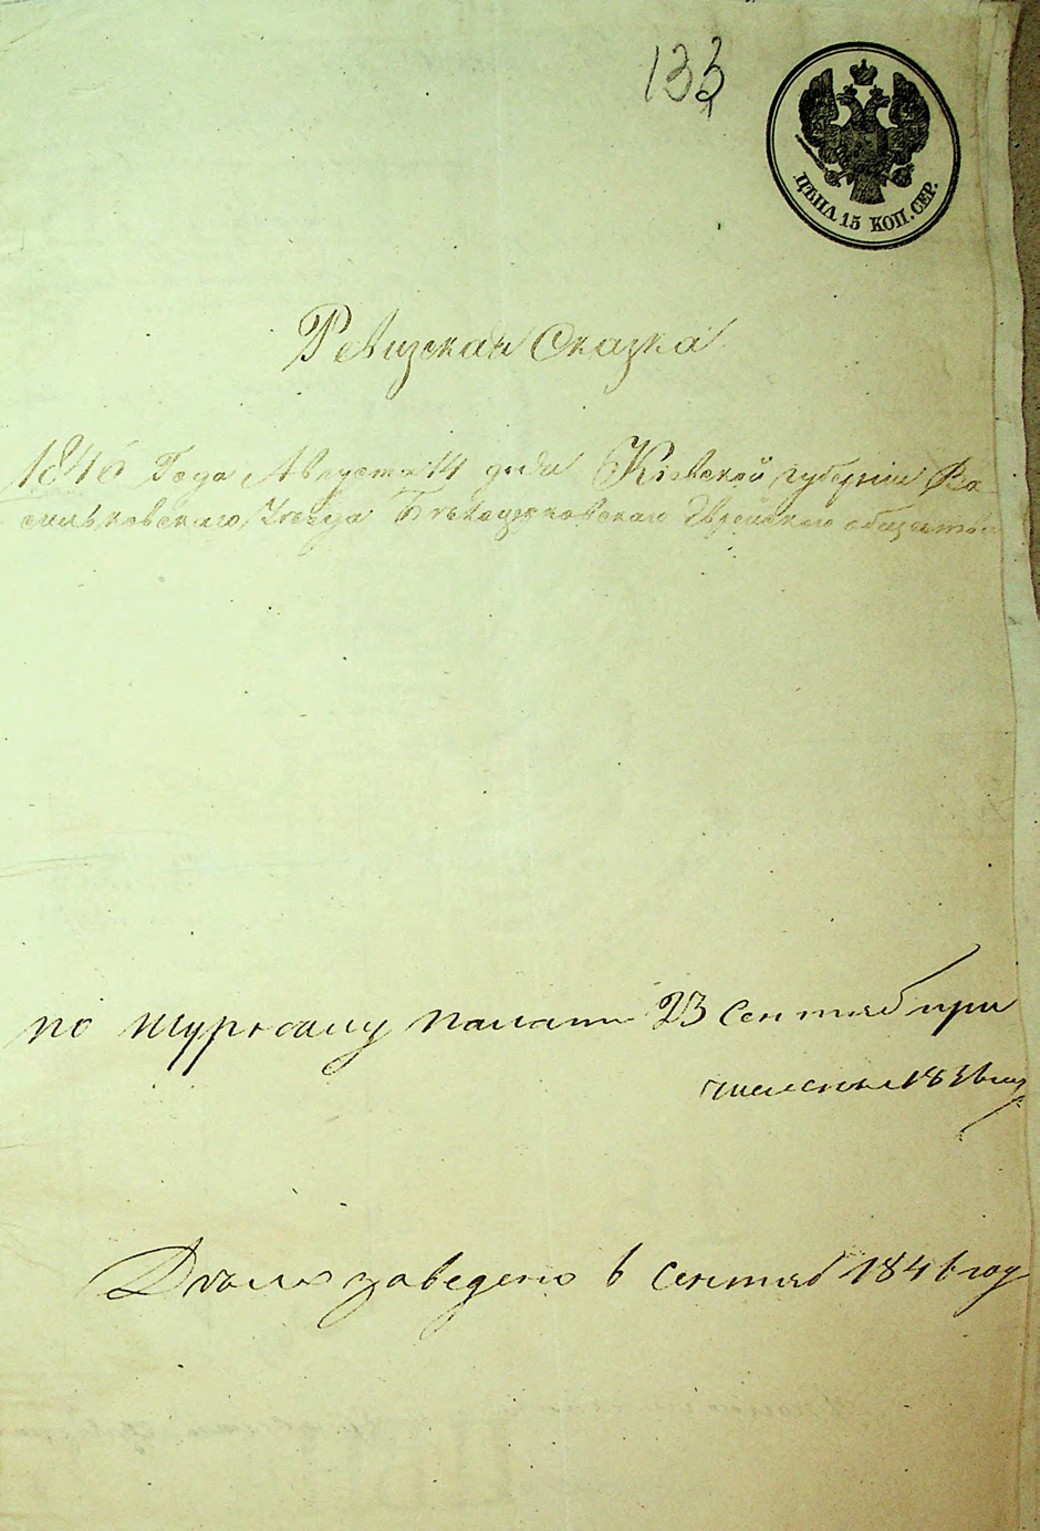 133
ЦѢНА 15 КОП. СЕР.
Ревизская Сказка
1846 Года Августа 14 дня Кіевской губерніи Ва-
сильковскаго Уезда Белоцерковскаго Еврейскаго общества
по журналу палаты 23 Сентяб при
1846
Дѣло заведено в Сентяб 1846 году